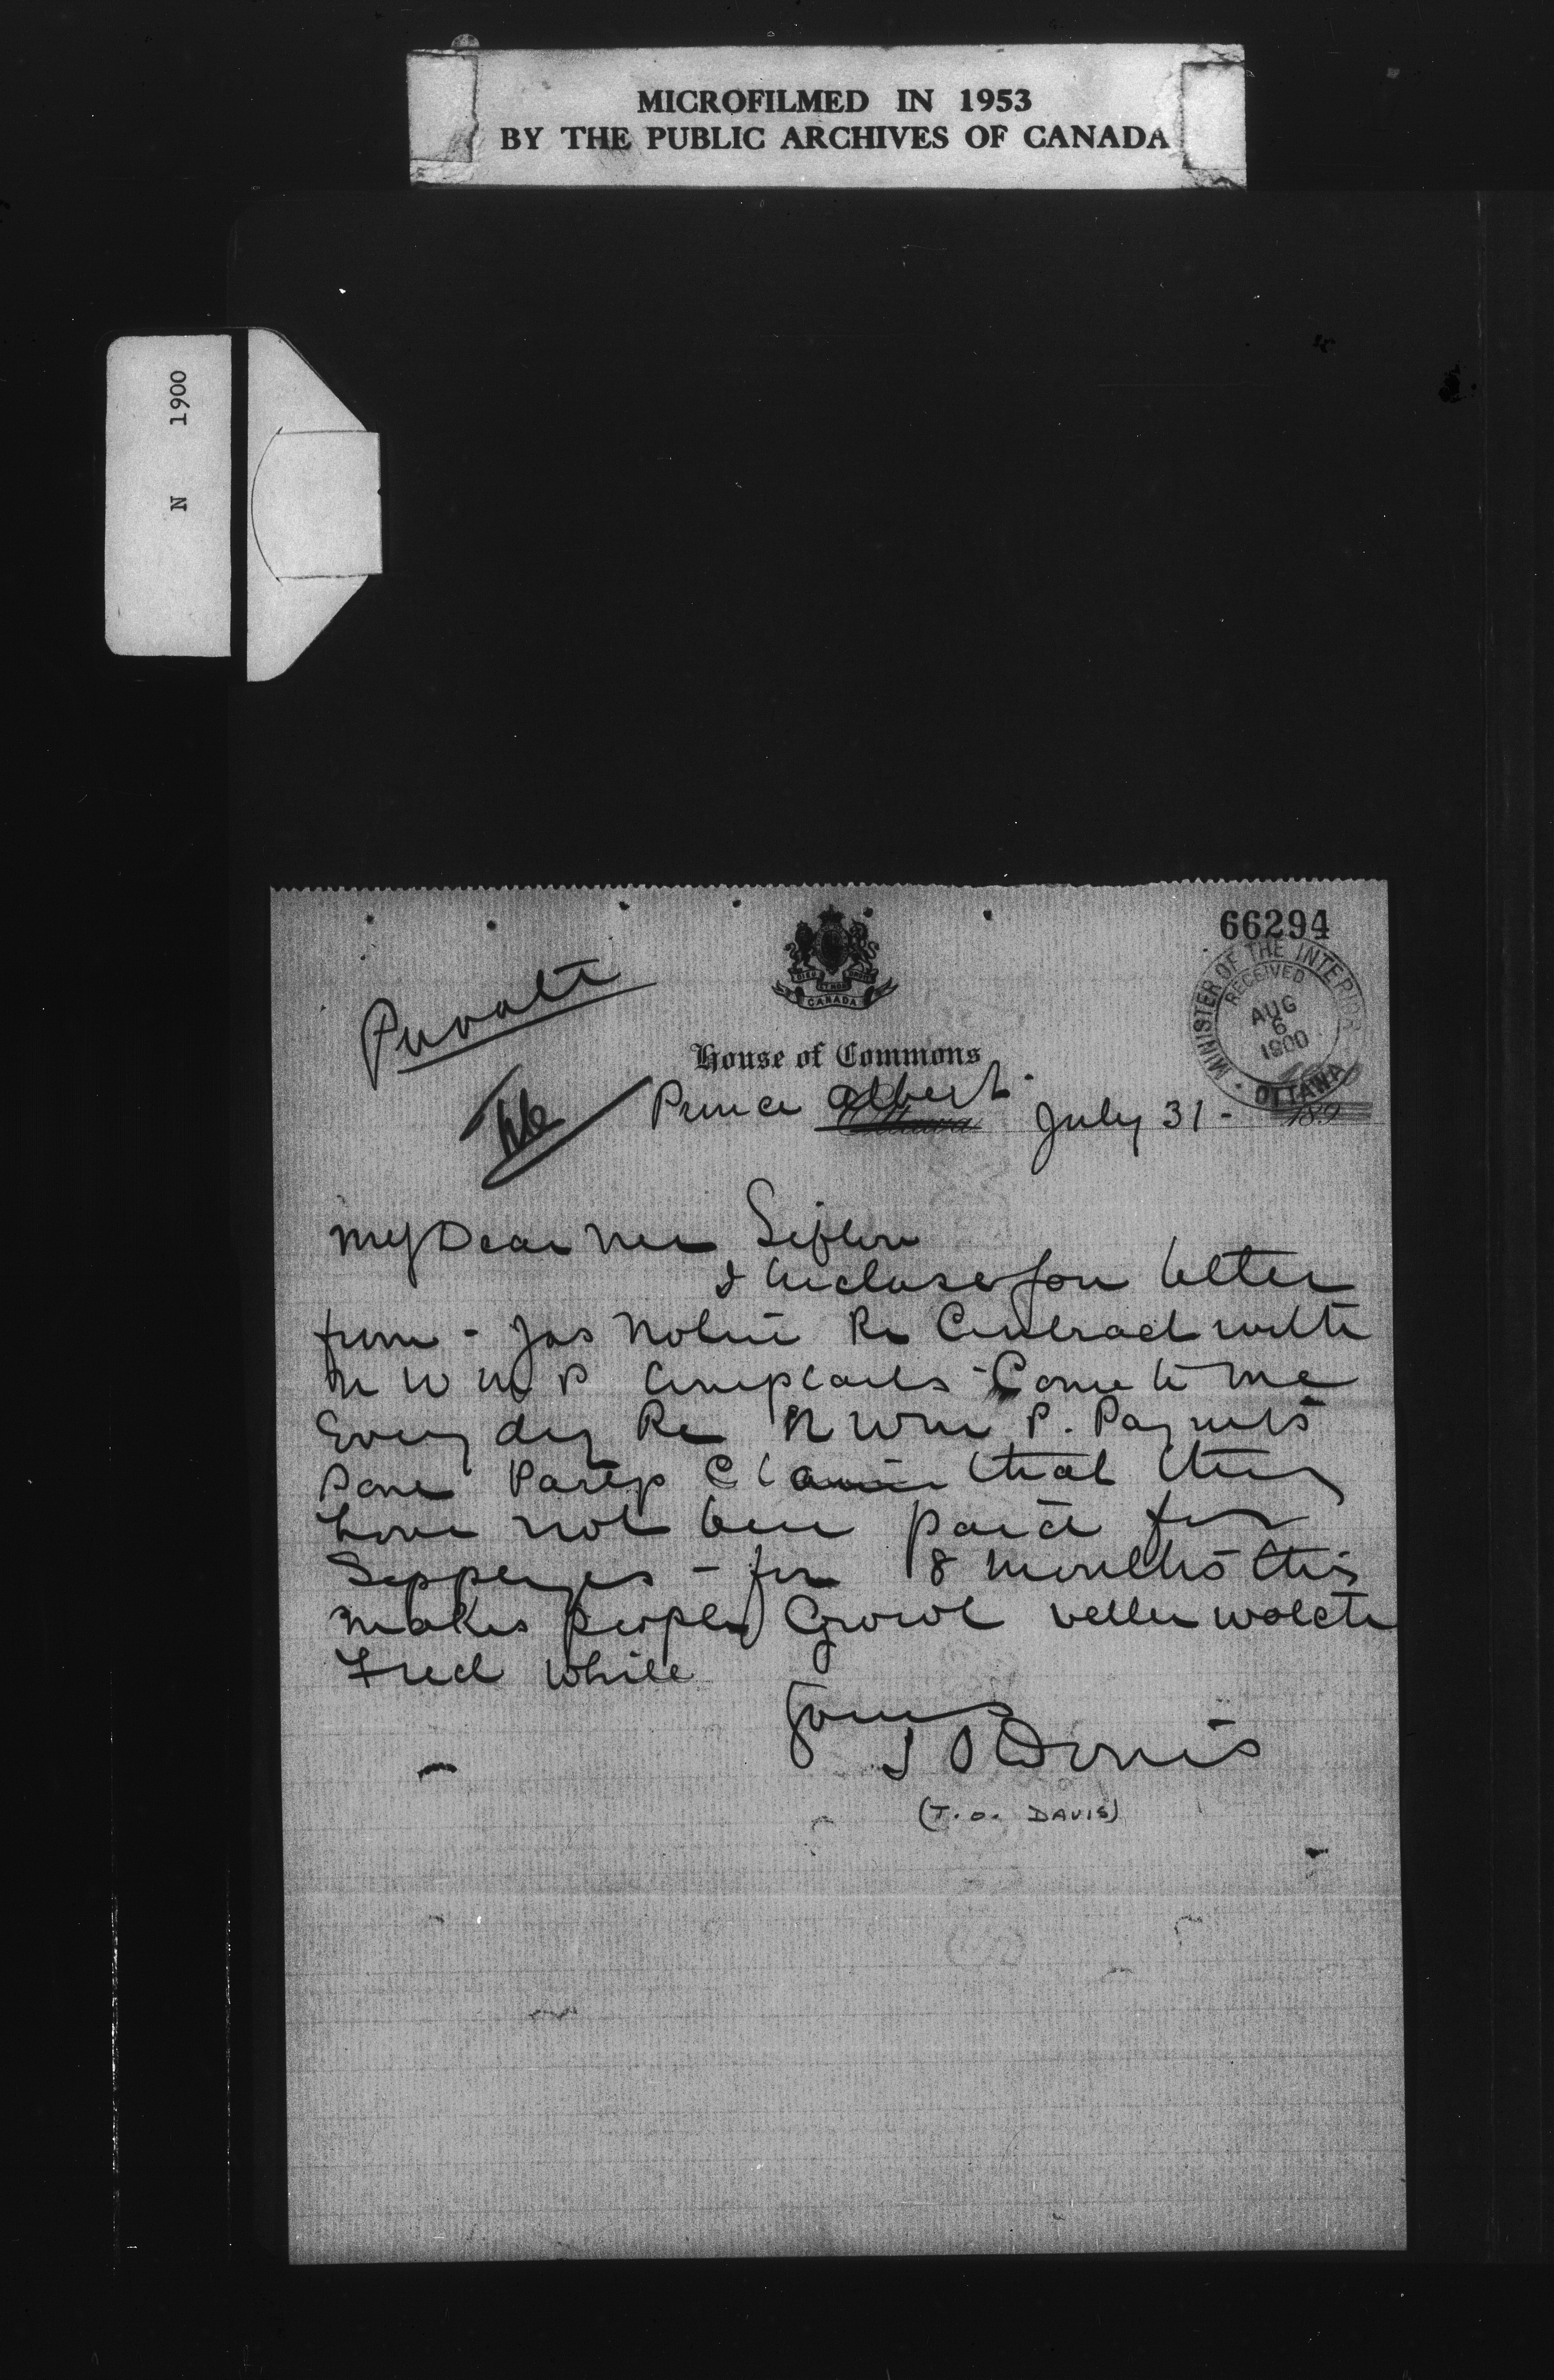 MICROFILMED IN 1953
BY THE PUBLIC ARCHIVES OF CANADA
N 1900
66294
MINISTER OF THE INTERIOR
RECEIVED
AUG
6
1900
OTTAWA
Private
CANADA
House of Commons
Prince Albert Ottawa July 31 - 189
My Dear Mr Sifton
I Enclose you letter
from - Jas Nolin Re Contract with
N W M P Complaints - Come to me
Every day Re N W M P. Payments
Some Partys Claim that they
have not been paid for
Supplyes - for 8 months this
makes people Growl
Fred White
Yours
T O Davis
(T.O. DAVIS)